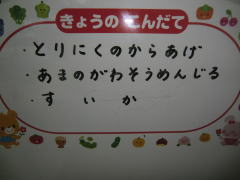 きょうの こんだて
・とりにくのからあげ
・あまのがわそうめんじる
・すいか